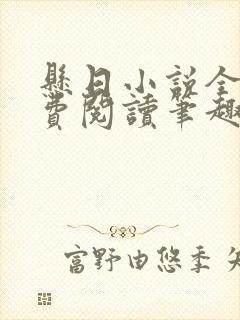 懸日小說全
費閱讀筆趣
富野由悠季 矢